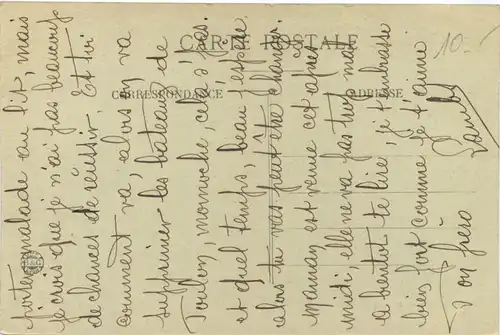 CARTE POSTALE
CORRESPONDANCE
ADRESSE
10-
B&G
porter malade au lit, mais
je crois que je n'ai pas beaucoup
de chances de réussir. Et toi
comment va, alors on va
supprimer les bateaux de
Toulon, mon moche, cela s'pas.
et quel temps beau j'espère.
alors tu vas peut être changer.
maman est venue cet après
midi, elle ne va pas trop mal.
a bientôt te lire, je t'embrasse
bien fort comme je t'aime
Ton frère